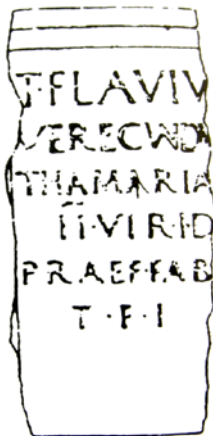 T·FLAVIV
VERECVND
THAMARIA
II·VIRID
PRAEF·FAB
T·F·I